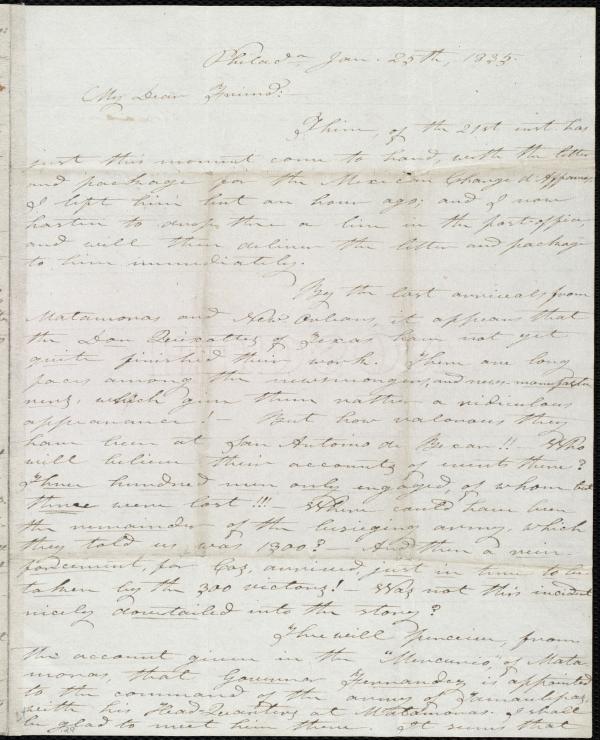 Philad.a Jan. 25th, 1835.
My Dear Friend:—
Thine, of the 21st inst. has
just this moment come to hand, with the letter
and package for the Mexican Chargé d'Affaires.
I left him but an hour ago; and I now
hasten to drop thee a line in the post-office,
and will then deliver the letter and package
to him immediately.
By the last arrivals from
Matamoras and New Orleans, it appears that
the Don Quixottes of Texas have not yet
quite finished their work. There are long
faces among the newsmongers, and news-manufactu
rers, which give them rather a ridiculous
appearance!— But how valorous they
have been at San Antoino de Bexar!!— Who
will believe their accounts of events there?
Three hundred men only engaged of whom but
three were lost!!!— Where could have been
the remainder of the besieging army, which
they told us was 1300?— And then a rein-
forcement, for Cos, arrived, just in time to be
taken by the 300 victors!— Was not this incident
nicely dovetailed into the story?
Thee will perceive, from
the account given in the "Mercurio," of Mata
moras, that Governor Fernandez is appointed
to the command of the army of Tamaulipas,
with his Head Quarters at Matamoras. I shall
be glad to meet him there. It seems that